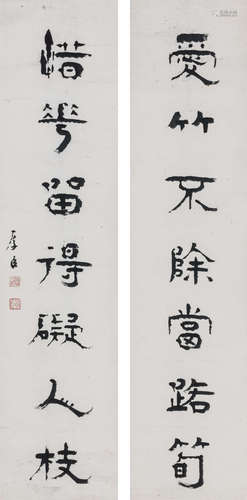 愛竹不除當路筍
惜花留得礙人枝